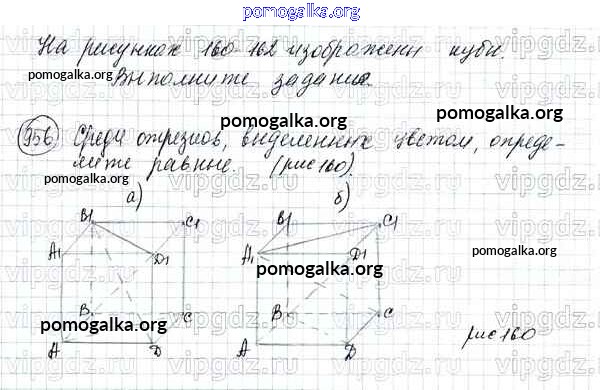 pomogalka.org
На рисунках 160-162 изображены кубы.
pomogalka.org Выполните задание.
pomogalka.org
956 Среди отрезков, выделенных цветом, опреде-
лите равные. (рис 160).
pomogalka.org
а) б)
B1 C1 B1 C1
A1 D1 A1 D1
pomogalka.org
pomogalka.org
B C B C
pomogalka.org
рис 160
A D A D
pomogalka.org
vipgdz.ru